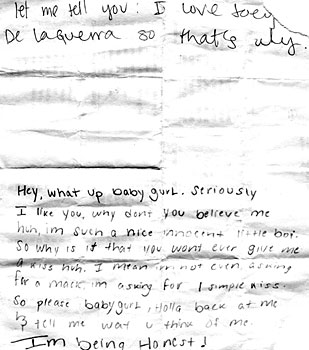 let me tell you: I love Joey
De Laguerra so that's why.
Hey, what up baby gurl. Seriously
I like you, why dont you believe me
huh, im such a nice innocent little boi.
So why is it that you wont ever give me
a kiss huh. I mean im not even asking
for a mack im asking for 1 simple kiss.
So please babygurl, Holla back at me
& tell me wat u think of me.
Im being Honest!